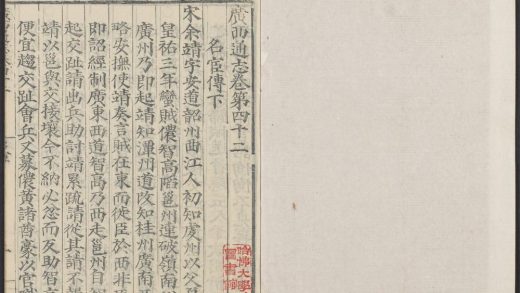 廣西通志卷第四十二
名宦傳下
宋余靖字安道韶州曲江人初知虔州以父
皇祐三年蠻賊儂智高陷邕州連破嶺南
廣州乃即起靖知潭州道改知桂州廣南西
路安撫使靖奏言賊在東而徙臣於西非
即詔經制廣東西道智高乃西走邕州自
起交趾請出兵助討靖累疏請從其請不報
靖以邕與交接壤今不納必忿而反助智
便宜趨交趾會兵又募儂黃諸酋豪以官
哈佛大學
圖書館